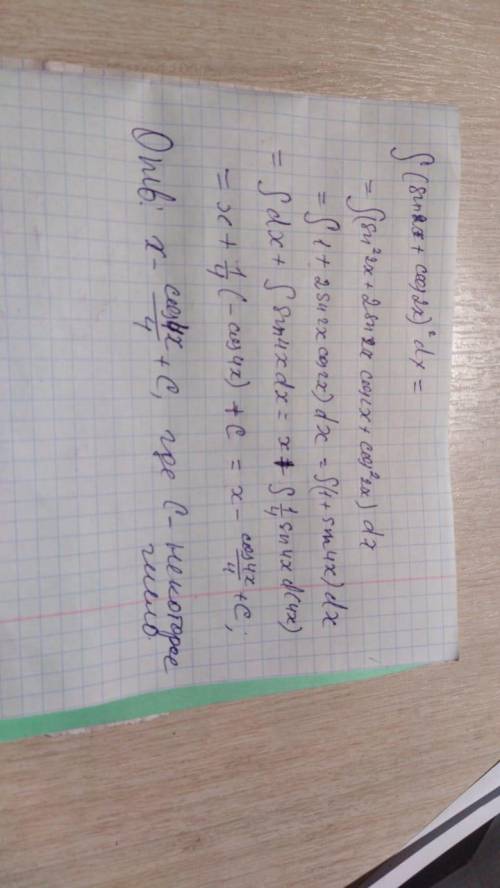 ∫(sin2x + cos2x)² dx =
= ∫(sin²2x + 2sin2x cos2x + cos²2x) dx
= ∫(1 + 2sin2x cos2x) dx = ∫(1 + sin4x) dx
= ∫dx + ∫sin4x dx = x + ∫1/4 sin4x d(4x)
= x + 1/4(-cos4x) + C = x - cos4x/4 + C;
Отв: x - cos4x/4 + C, где C - некоторое
число.